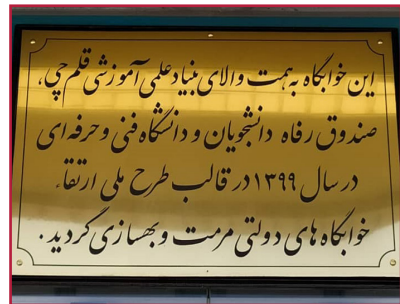 این خوابگاه به همت والای بنیاد علمی آموزشی قلم چی،
صندوق رفاه دانشجویان و دانشگاه فنی و حرفه ای
در سال ۱۳۹۹ در قالب طرح ملی ارتقاء
خوابگاه های دولتی مرمت و بهسازی گردید.